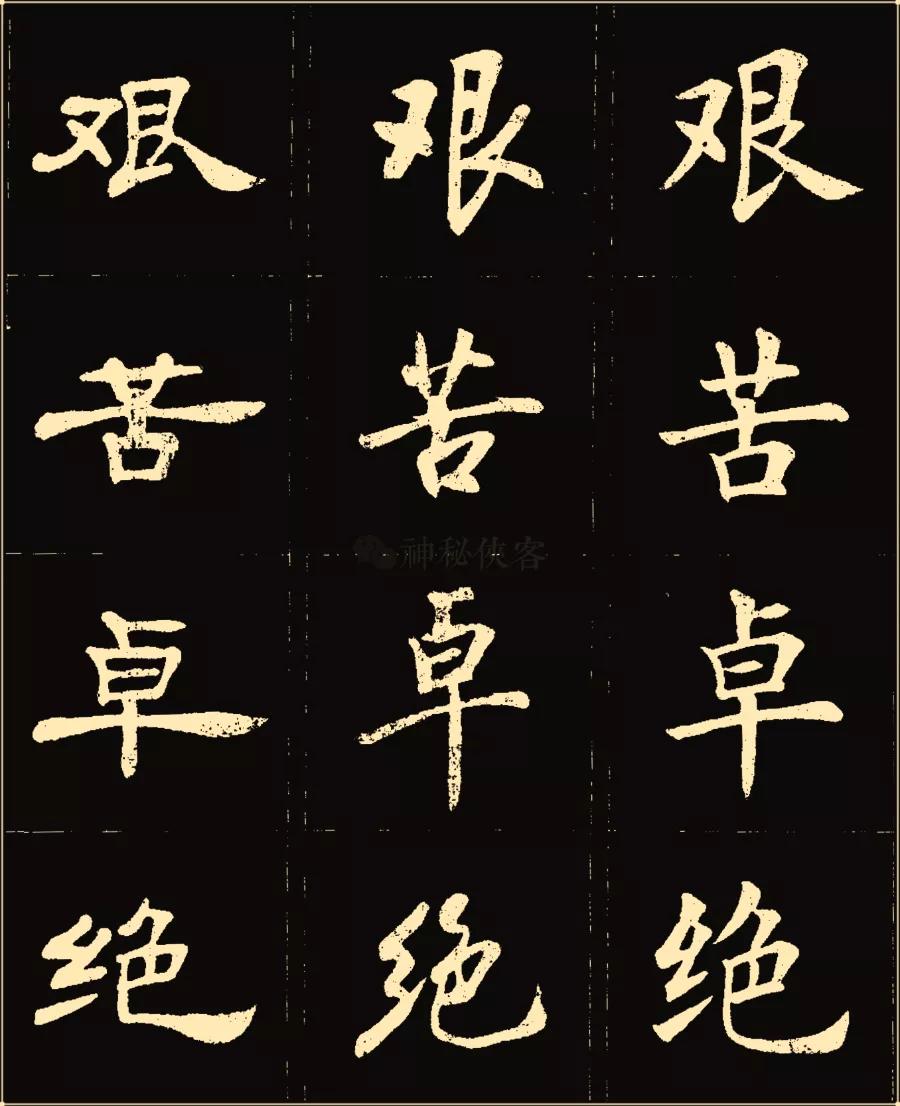 艰艰艰
苦苦苦
卓卓卓
绝绝绝
神秘侠客